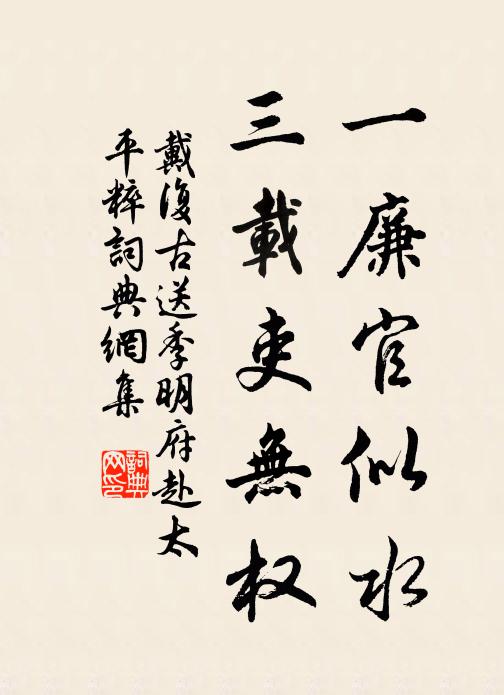 一廉官似水
三載吏無权
戴復古送季明府赴太
平粹詞典網集
詞典网印